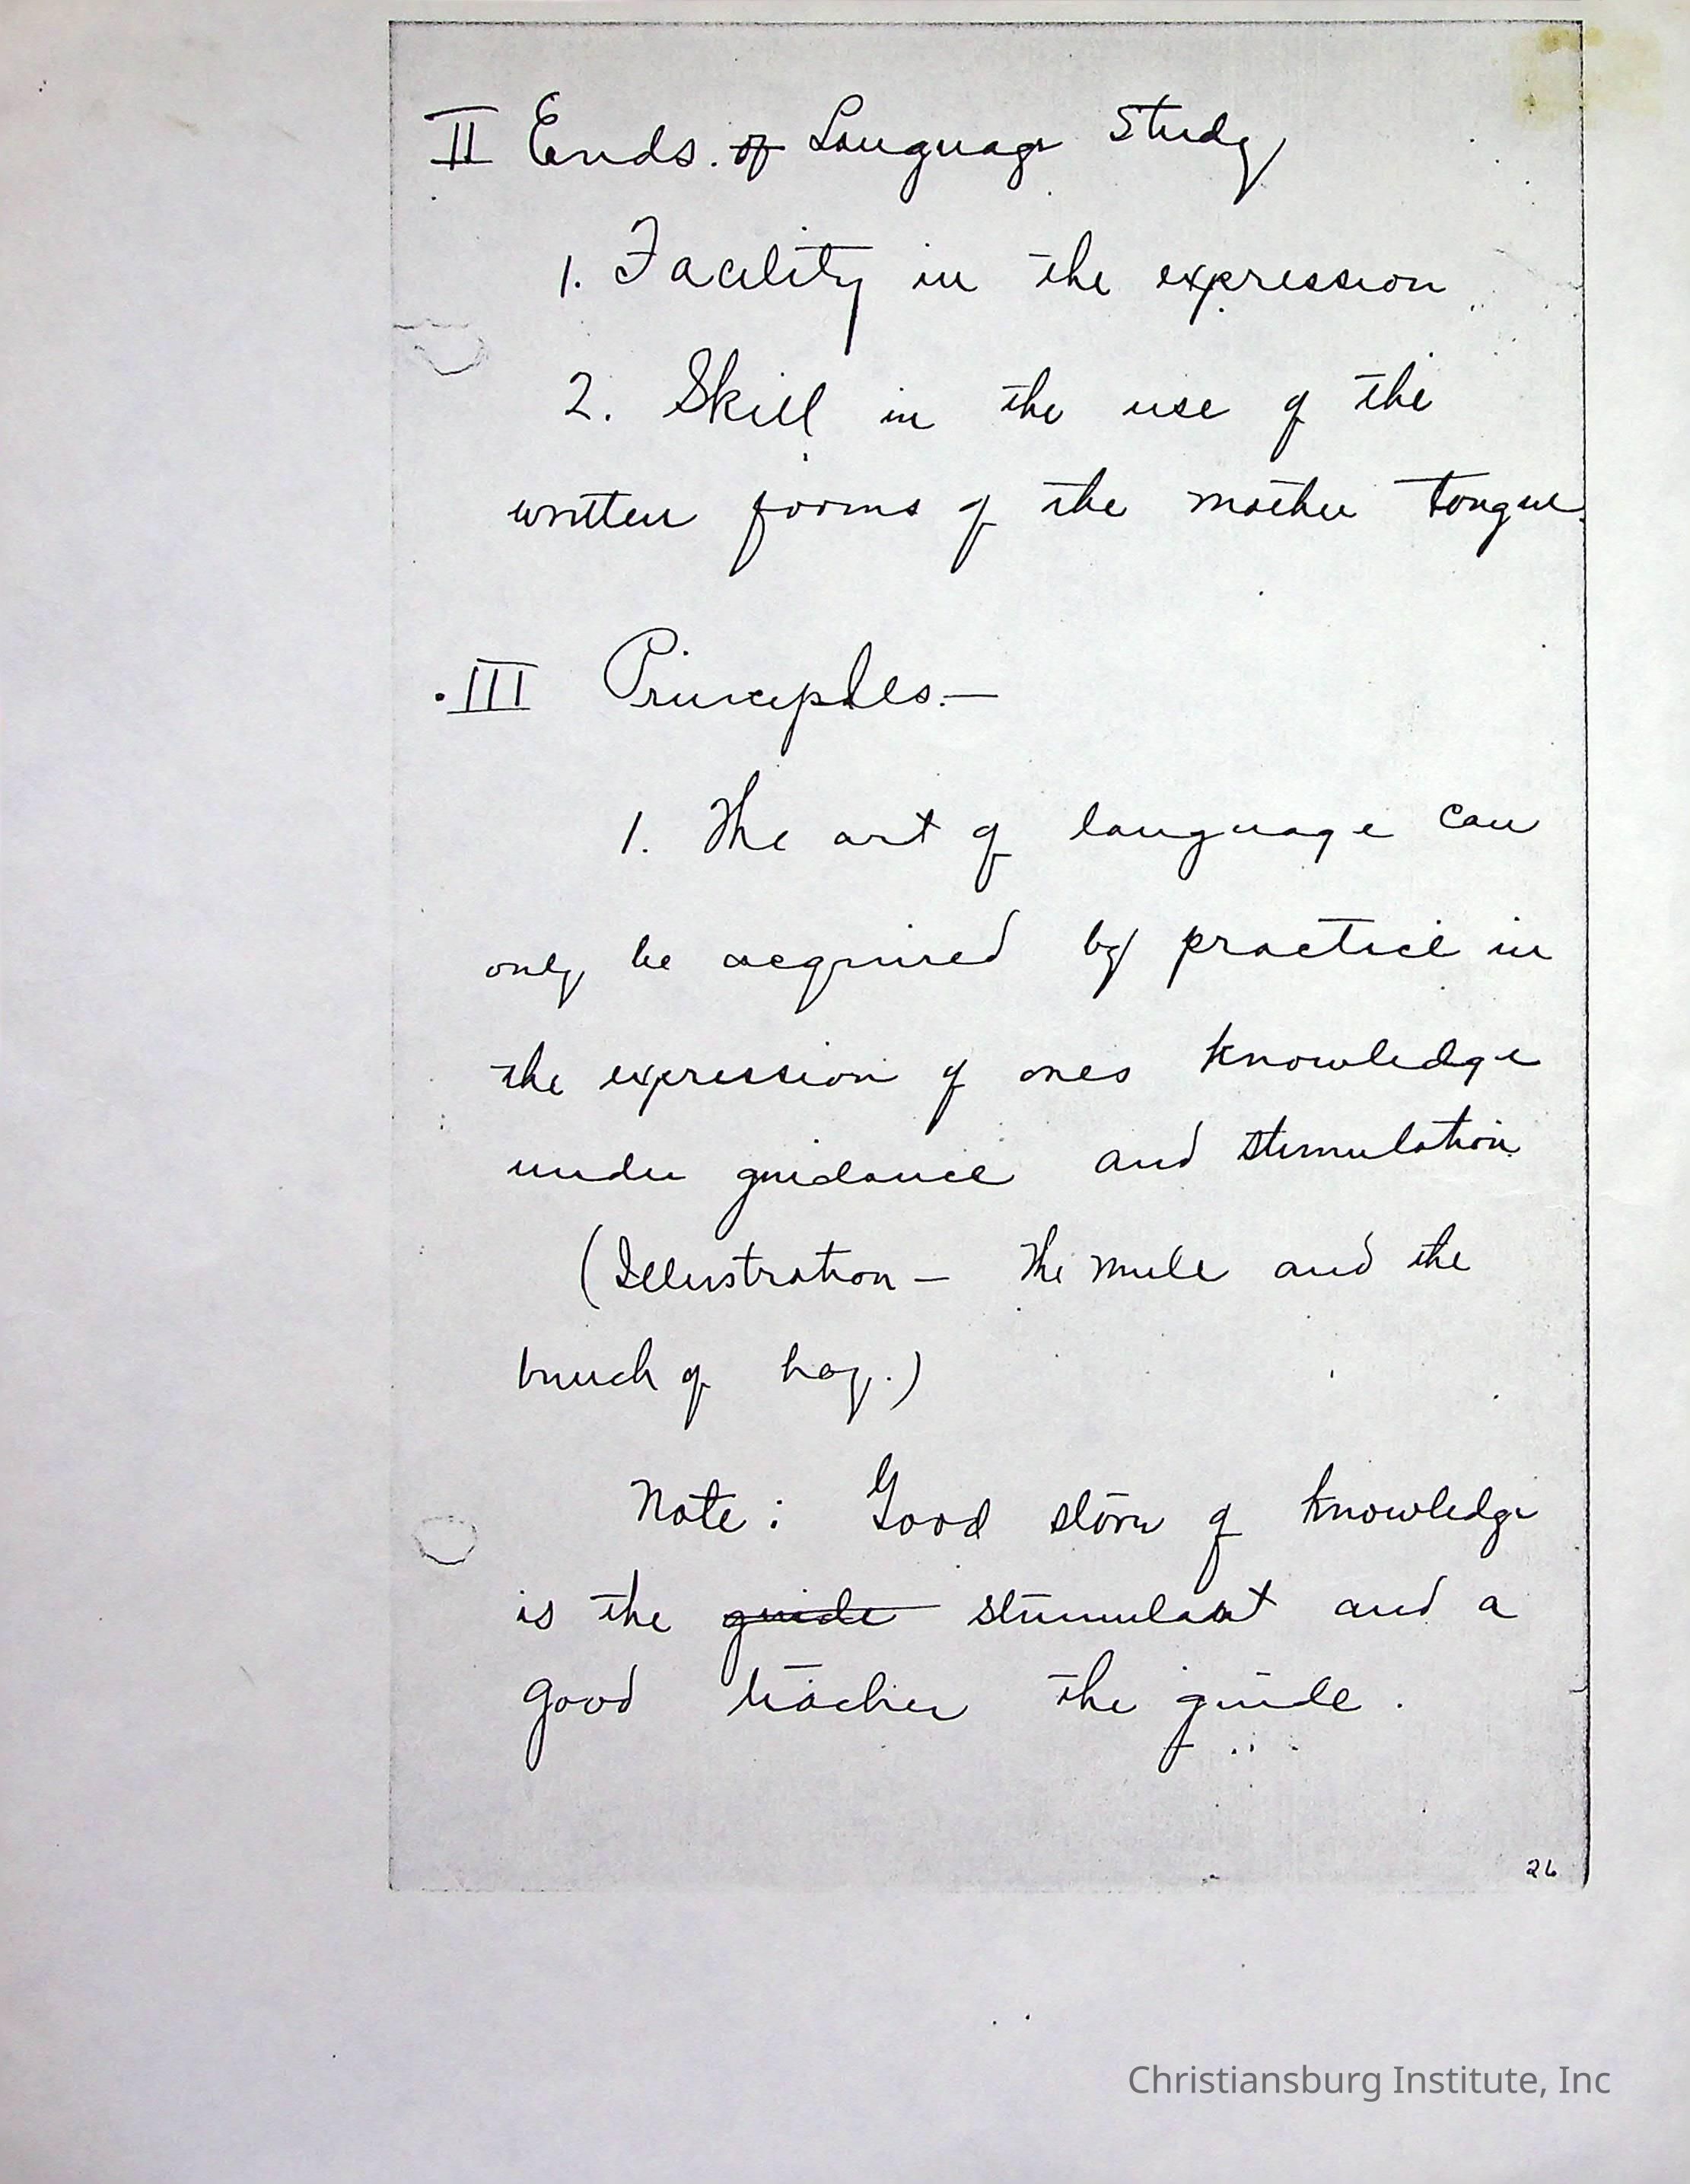 II Ends of Language Study
1. Facility in the expression
2. Skill in the use of the
written forms of the mother tongue.
III Principles.—
1. The art of language can
only be acquired by practice in
the expression of ones knowledge
under guidance and stimulation
(Illustration — The mule and the
bunch of hay.)
Note: Good store of knowledge
is the guide stimulant and a
good teacher the guide.
26
Christiansburg Institute, Inc